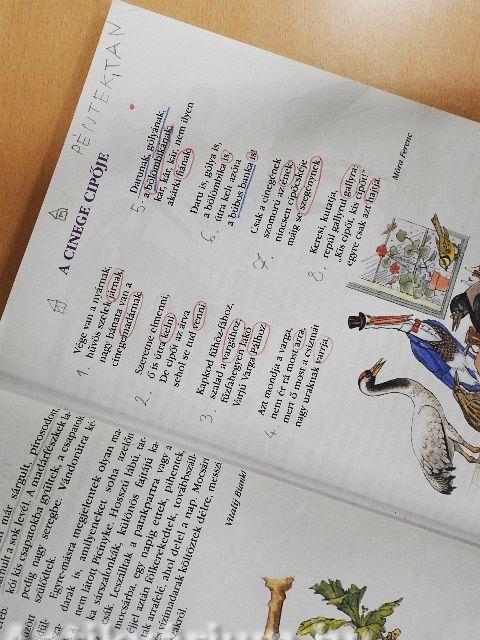 PÉNTEK, TAN
A CINEGE CIPŐJE
1. Vége van a nyárnak,
hűvös szelek járnak,
nagy bánata van a
cinegemadárnak.
2. Szeretne elmenni,
ő is útra kelni.
De cipőt az árva
sehol se tud venni.
3. Kapkod fűhöz-fához,
szalad a vargához,
fűzfahegyen lakó
Varjú Varga Pálhoz.
4. Azt mondja a varga,
nem ér rá most arra,
mert ő most a csizmát
nagy uraknak varrja.
5. Darunak, gólyának,
a bölömbikának,
kár, kár, kár, nem ilyen
akárki fiának.
6. Daru is, gólya is,
a bölömbika is,
útra kelt azóta
a búbos banka is.
7. Csak a cinegének
szomorú az ének:
nincsen cipőcskéje
máig se szegénynek.
8. Keresi, kutatja,
repül gallyrul gallyra:
„Kis cipőt, kis cipőt!"
egyre csak azt hajtja.
Móra Ferenc
már sárgult, pirosodott,
hullt a sok levél. A madárfészkek la-
kói kis csapatokba gyűltek, a csapatok
pedig nagy seregbe. Vándorútra ké-
szülődtek.
Egyre-másra megjelentek olyan ma-
darak is, amilyeneket soha azelőtt
nem látott Picinyke. Hosszú lábú, tar-
ka sárszalonkák, különös fajtájú ka-
csák. Leszálltak a parakpartra vagy a
mocsárba, egy napig ettek, pihentek,
éjjel aztán fölkerekedtek, továbbszáll-
tak arrafelé, ahol delel a nap. Mocsári
vízimadarak költöztek délre, messzi
Vitalij Bianki